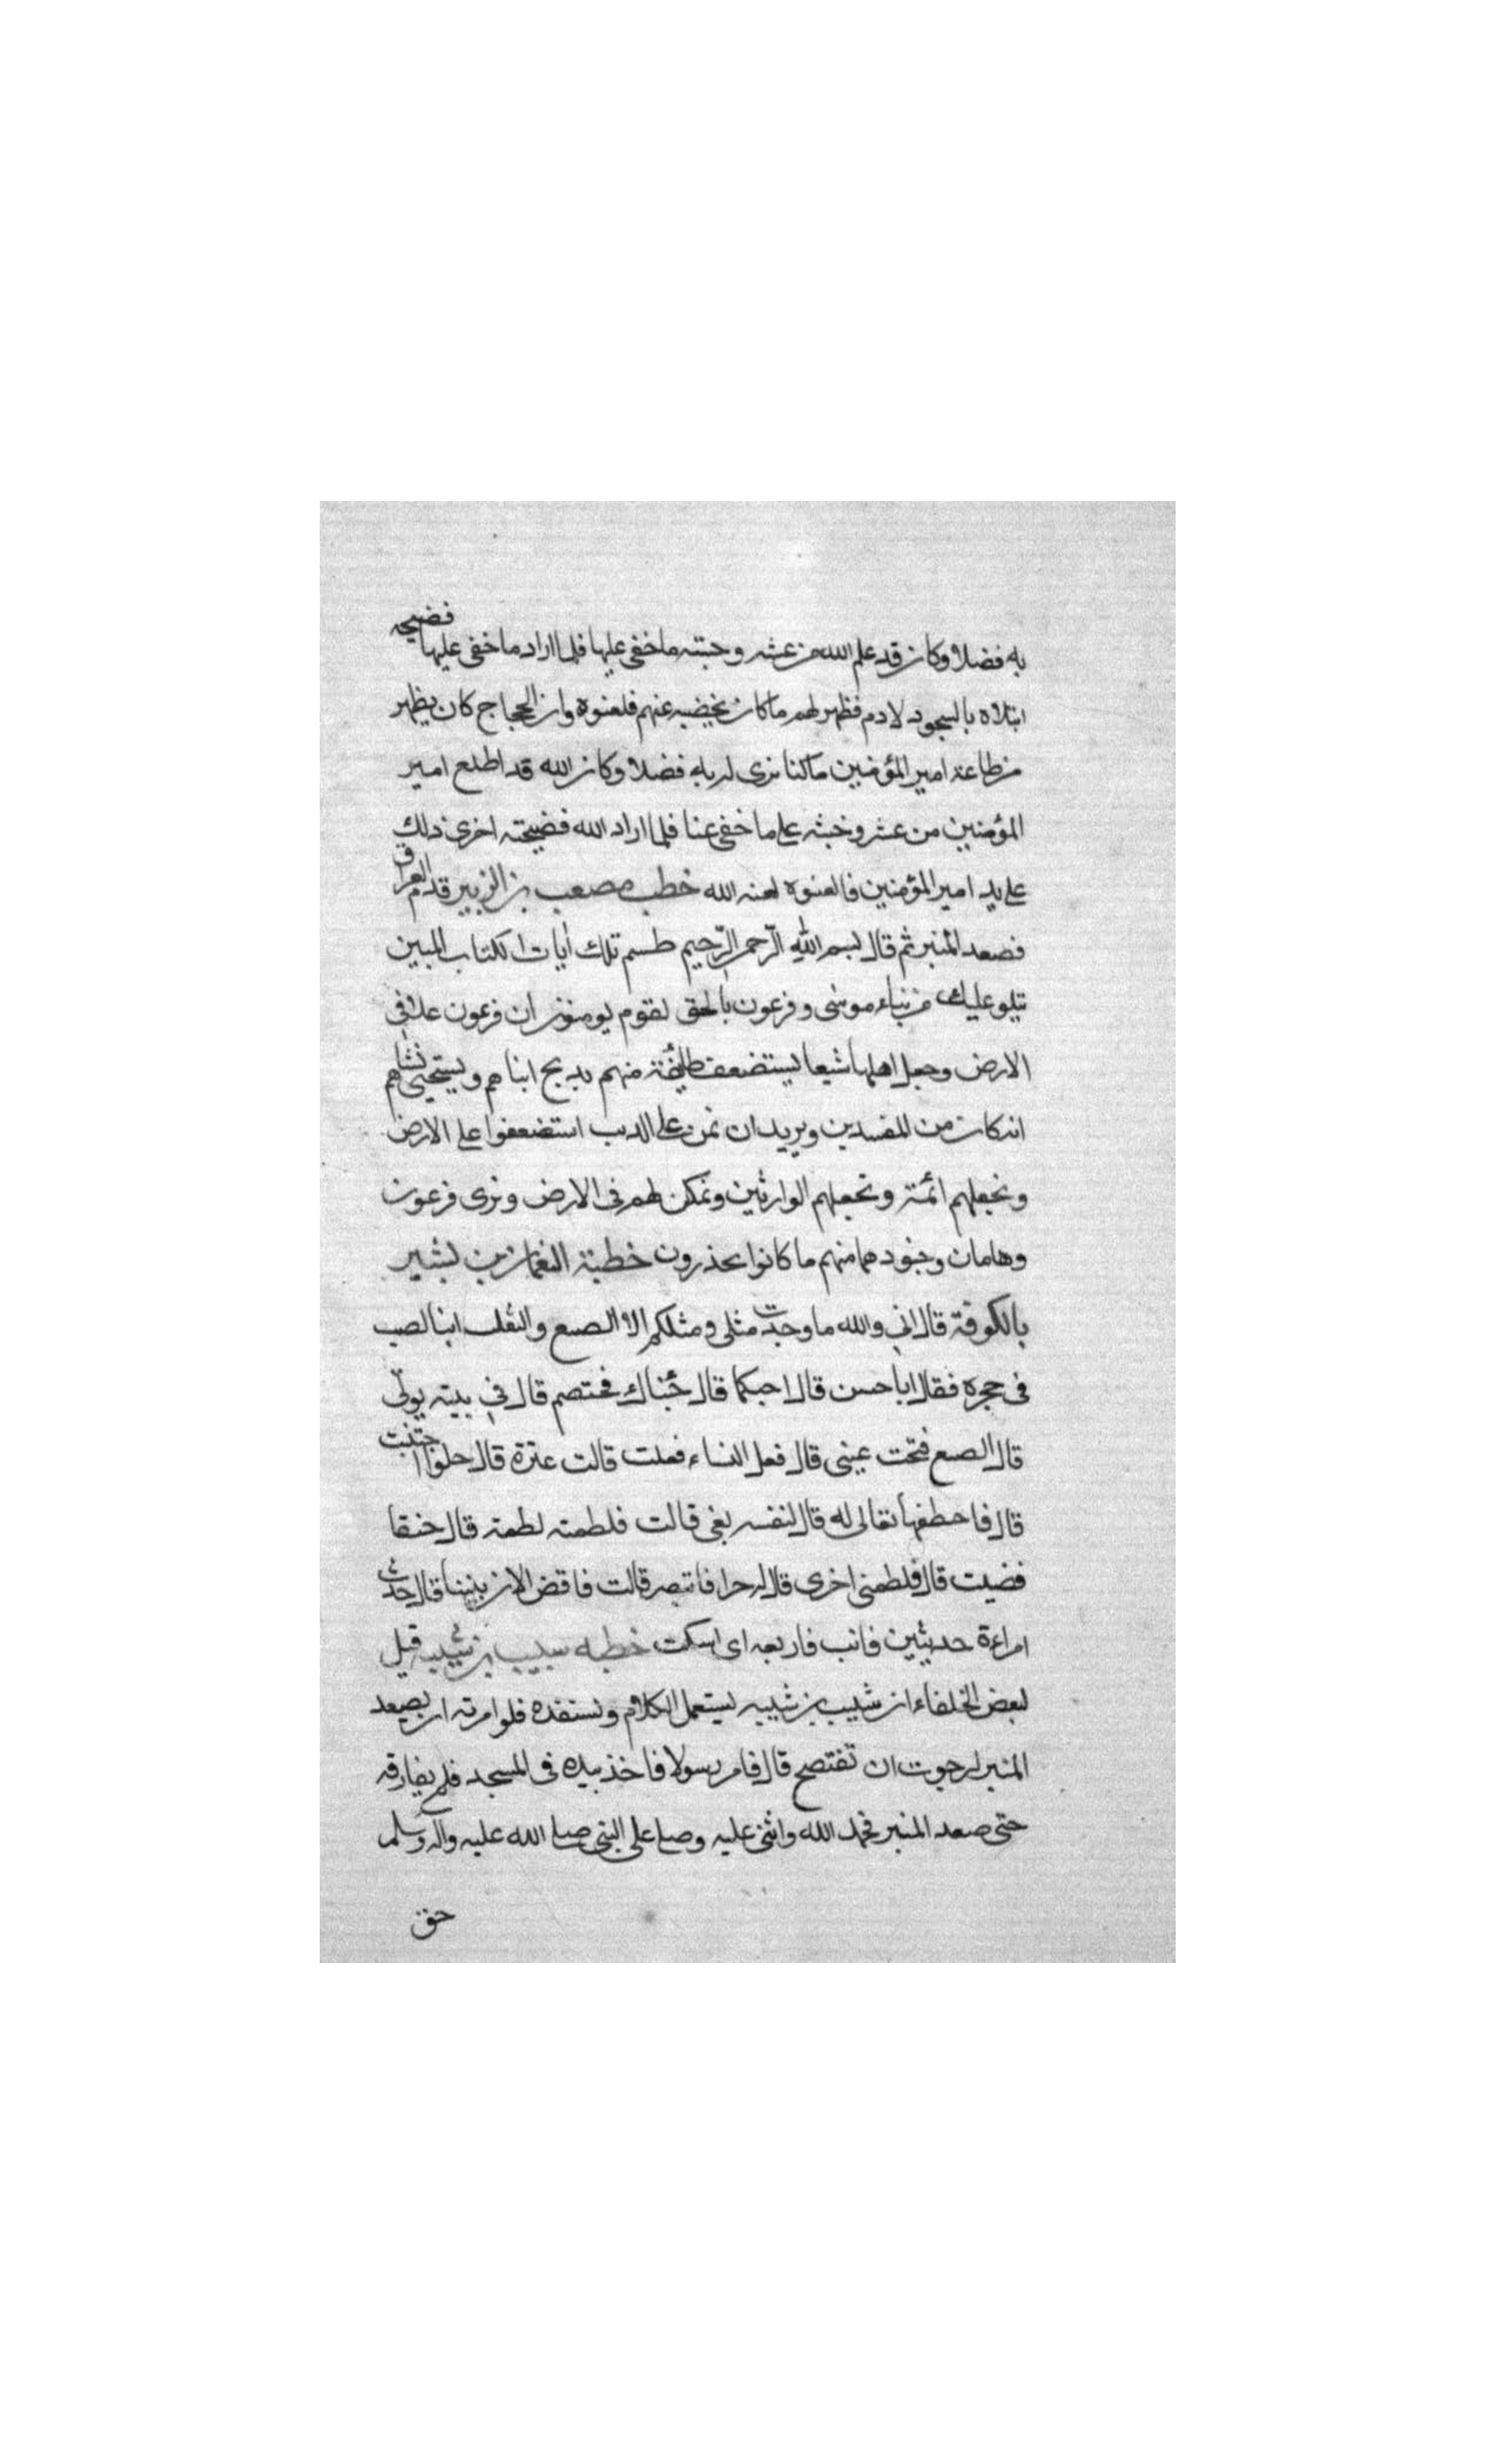 به فضلا وكان قد علم الله من غشه وخبثه ما خفى عليها فلما اراد ما خفى عليها فضيحه
ابتلاه بالسجود لادم فظهر لهم ما كان يخفيه عنهم فلعنوه وان الحجاج كان يظهر
من طاعة امير المؤمنين ما كنا نرى له به فضلا وكان الله قد اطلع امير
المؤمنين من غشه وخبثه على ما خفى عنا فلما اراد الله فضيحته اجرى ذلك
على يد امير المؤمنين فالعنوه لعنه الله خطب مصعب بن الزبير قدم العراق
فصعد المنبر ثم قال بسم الله الرّحمن الرّحيم طسم تلك آيات الكتاب المبين
نتلو عليك من نباء موسى وفرعون بالحق لقوم يومنون ان فرعون علا فى
الارض وجعل اهلها شيعا يستضعف طائفة منهم يذبح ابناهم ويستحيى نساهم
انه كان من المفسدين ونريد ان نمن على الذين استضعفوا على الارض
ونجعلهم ائمة ونجعلهم الوارثين ونمكن لهم فى الارض ونرى فرعون
وهامان وجنودهما منهم ما كانوا يحذرون خطبة النعمان بن بشير
بالكوفة قال انى والله ما وجدت مثلى ومثلكم الا الضبع والثعلب اتيا الضب
فى حجره فقالا ابا حسن قال اجبكما قال جئناك نختصم قال فى بيته يوتى
قال الضبع فتحت عينى قال فعل النساء فعلت قالت عنزة قال حلوا اجتنبت
قال فاحطفها ثعالى له قال لنفسه بغى قالت فلطمته لطمة قال حنقا
فضيت قال فلطمنى اخرى قال له حرا فانتصر قالت فاقض الان بيننا قال حدث
امراءة حديثين فانب فاربعه اى اسكت خطبه شبيب بن شيبه قيل
لبعض الخلفاء ان شبيب بن شيبه يستعمل الكلام ويستفده فلو امرته ان يصعد
المنبر لرجوت ان تفتضح قال فامر رسولا فاخذ بيده فى المسجد فلم يفارقه
حتى صعد المنبر فحمد الله واثنى عليه وصلى على النبى صلى الله عليه واله وسلم
حق